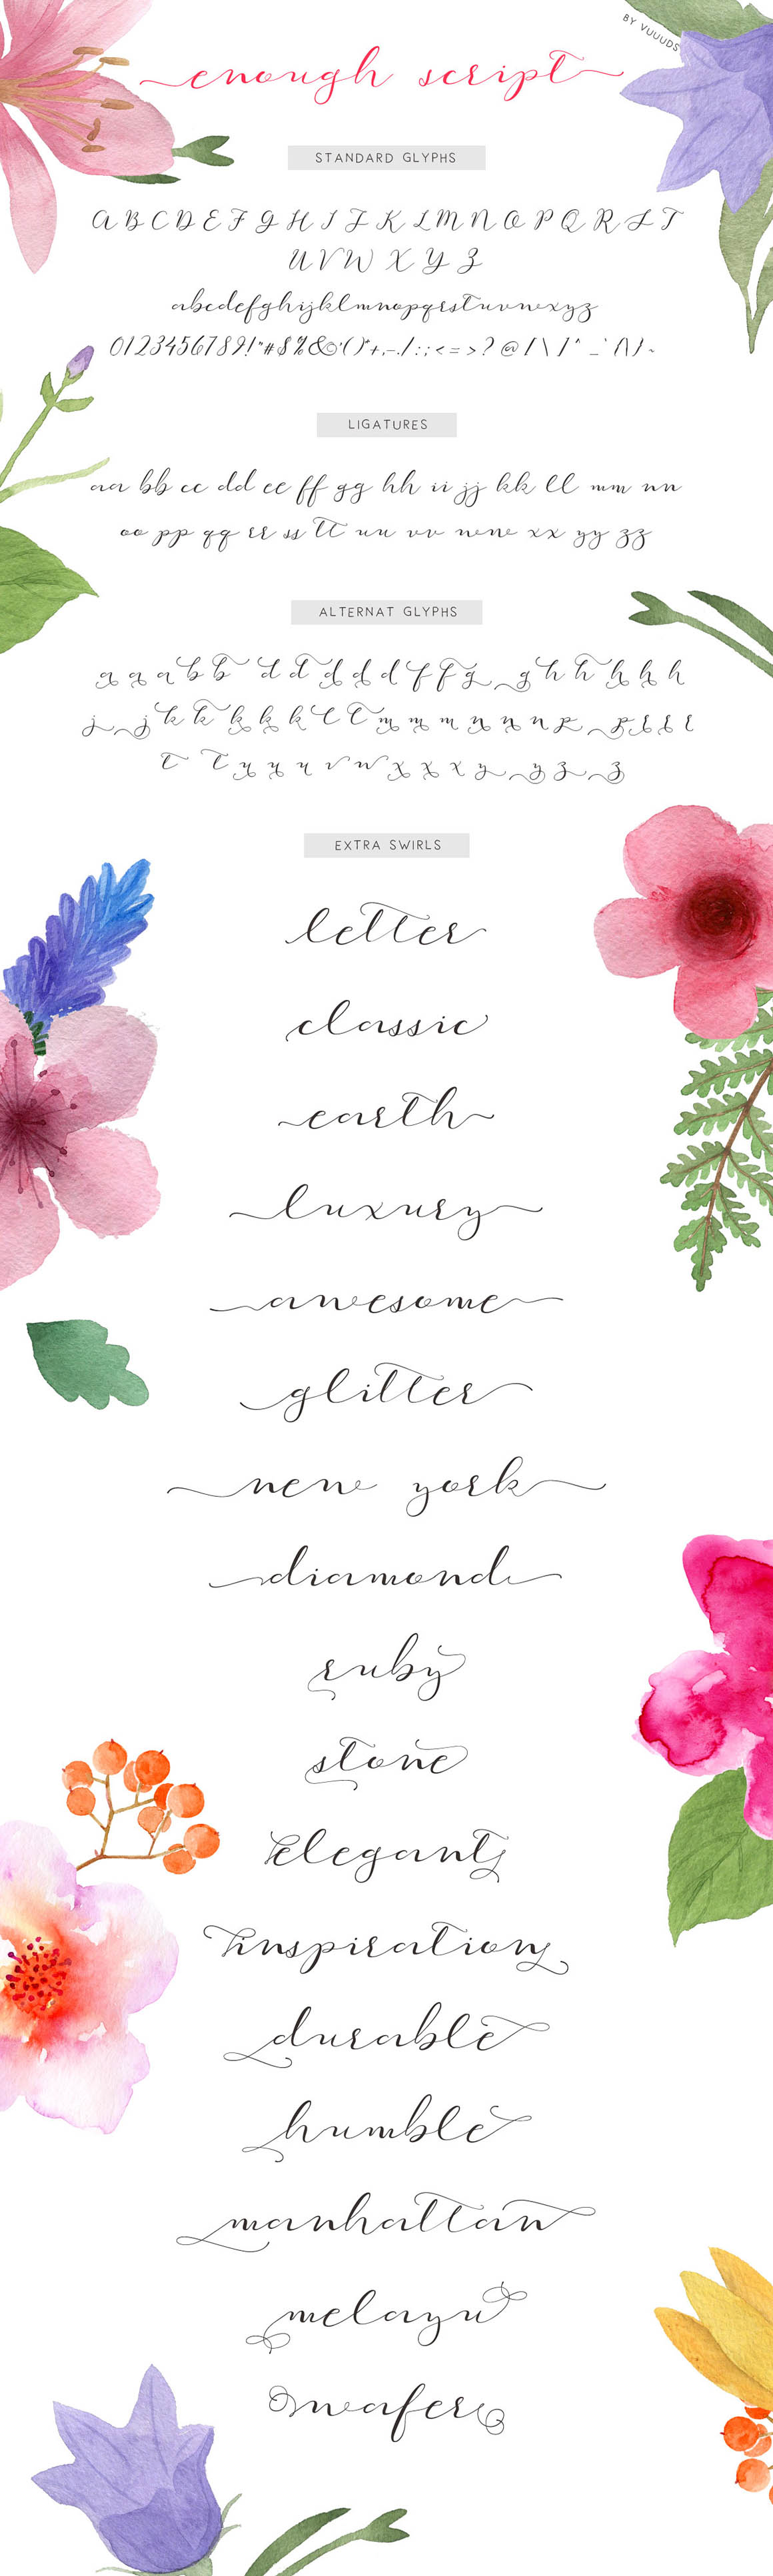 BY VUUUDS
enough script
STANDARD GLYPHS
A B C D E F G H I J K L M N O P Q R S T
U V W X Y Z
abcdefghijklmnopqrstuvwxyz
0123456789!"#$%&©'()*+,-./:;<=>?@[\]^_`{|}~
LIGATURES
aa bb cc dd ee ff gg hh ii jj kk ll mm nn
oo pp qq rr ss tt uu vv ww xx yy zz
ALTERNAT GLYPHS
a a a b b d d d d d f f g g h h h h h
j j k k k k k l l m m m n n n p p r r r
t t u u u v w x x x y y z z
EXTRA SWIRLS
letter
classic
earth
luxury
awesome
glitter
new york
diamond
ruby
stone
elegant
inspiration
durable
humble
manhattan
melayu
wafer